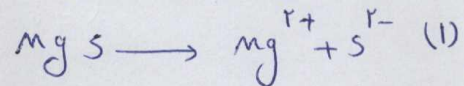 mg s ⟶ mg^۲+ + s^۲- (1)